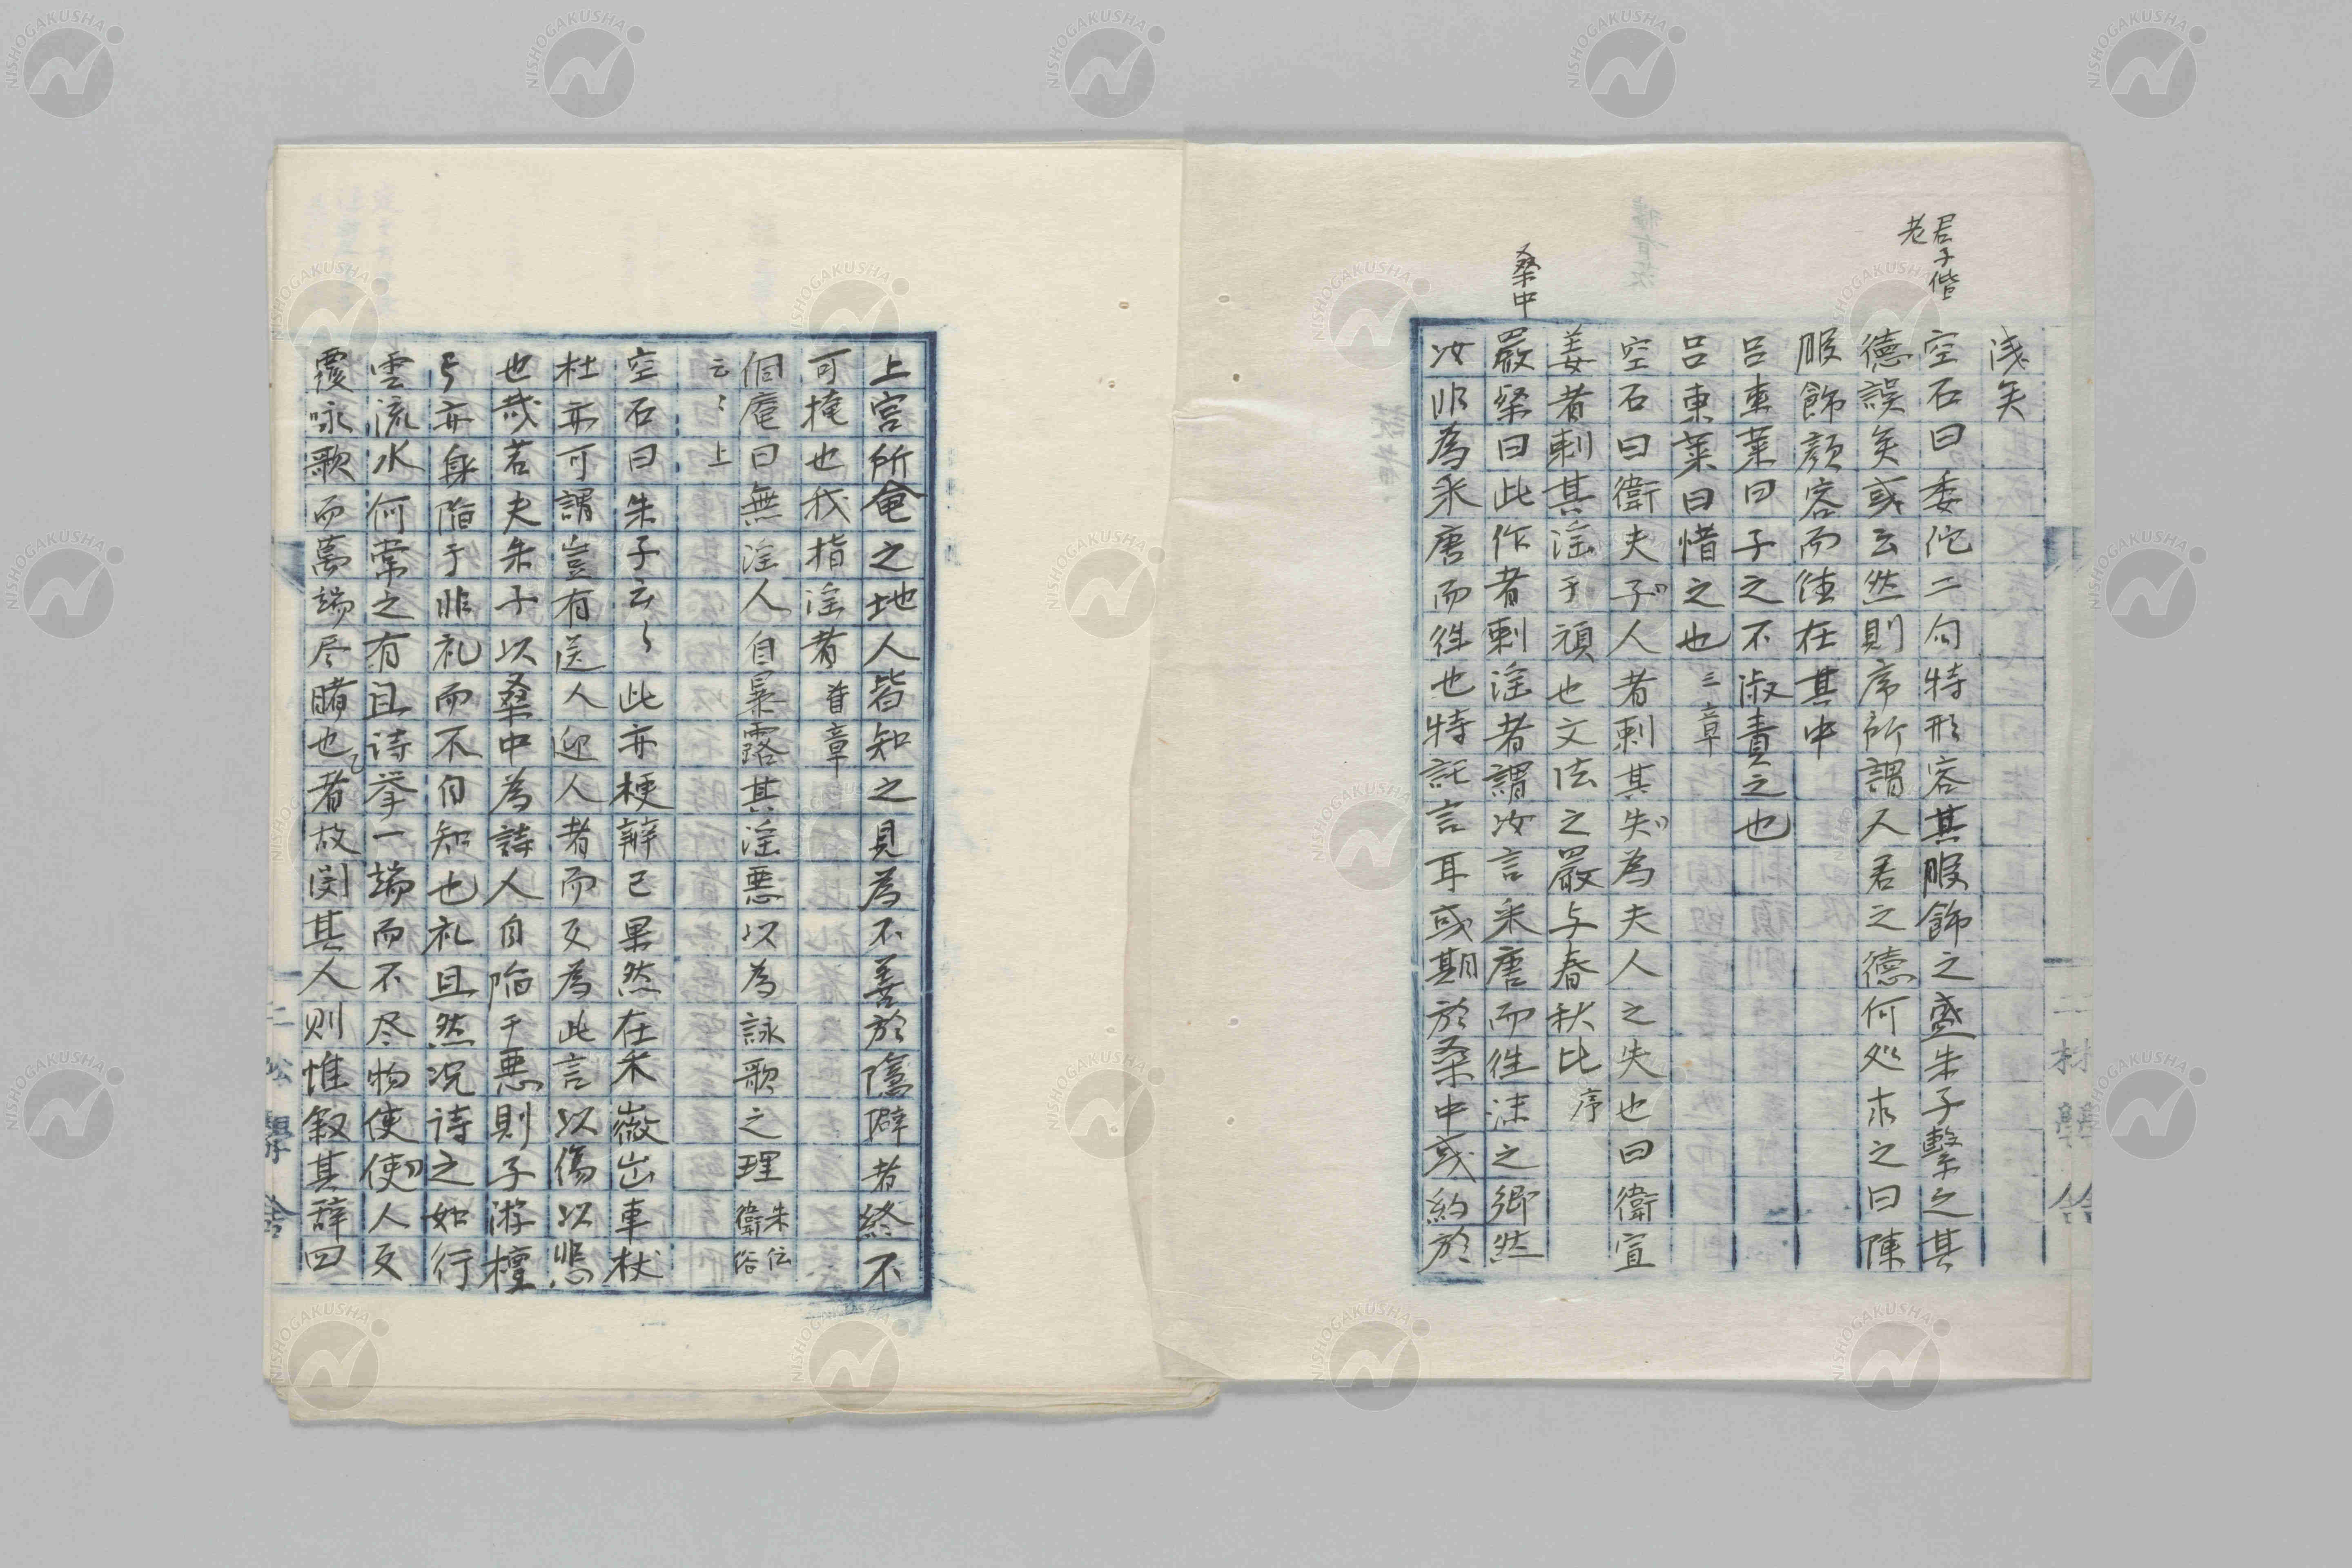 浅矣
君子偕
老
空石曰委佗二句特形容其服飾之盛朱子繫之其
德誤矣或云然則序所謂人君之德何処求之曰陳
服飾顔容而德在其中
呂東莱曰子之不淑責之也
呂東莱曰惜之也三章
空石曰衛夫子人者刺其失為夫人之失也曰衛宣
姜者刺其淫于頑也文法之嚴与春秋比序
桑中
嚴粲曰此作者刺淫者謂汝言采唐而往沬之郷然
汝非為采唐而往也特託言耳或期於桑中或約於
上宮所奄之地人皆知之見為不善於隠僻者終不
可掩也我指淫者首章
個庵曰無淫人自暴露其淫悪以為詠歌之理朱伝衛俗
云々上
空石曰朱子云々此亦梗辯已果然在采薇出車杕
杜亦可謂豈有送人迎人者而反為此言以傷以悲
也哉若夫朱子以桑中為詩人自陥于悪則子游檀
弓亦身陥于非礼而不自知也礼且然况诗之如行
雲流水何常之有且诗挙一端而不尽物使使人反
覆咏歌而萬端尽睹也者故閔其人則惟叙其辞四
二松學舎
NISHOGAKUSHA